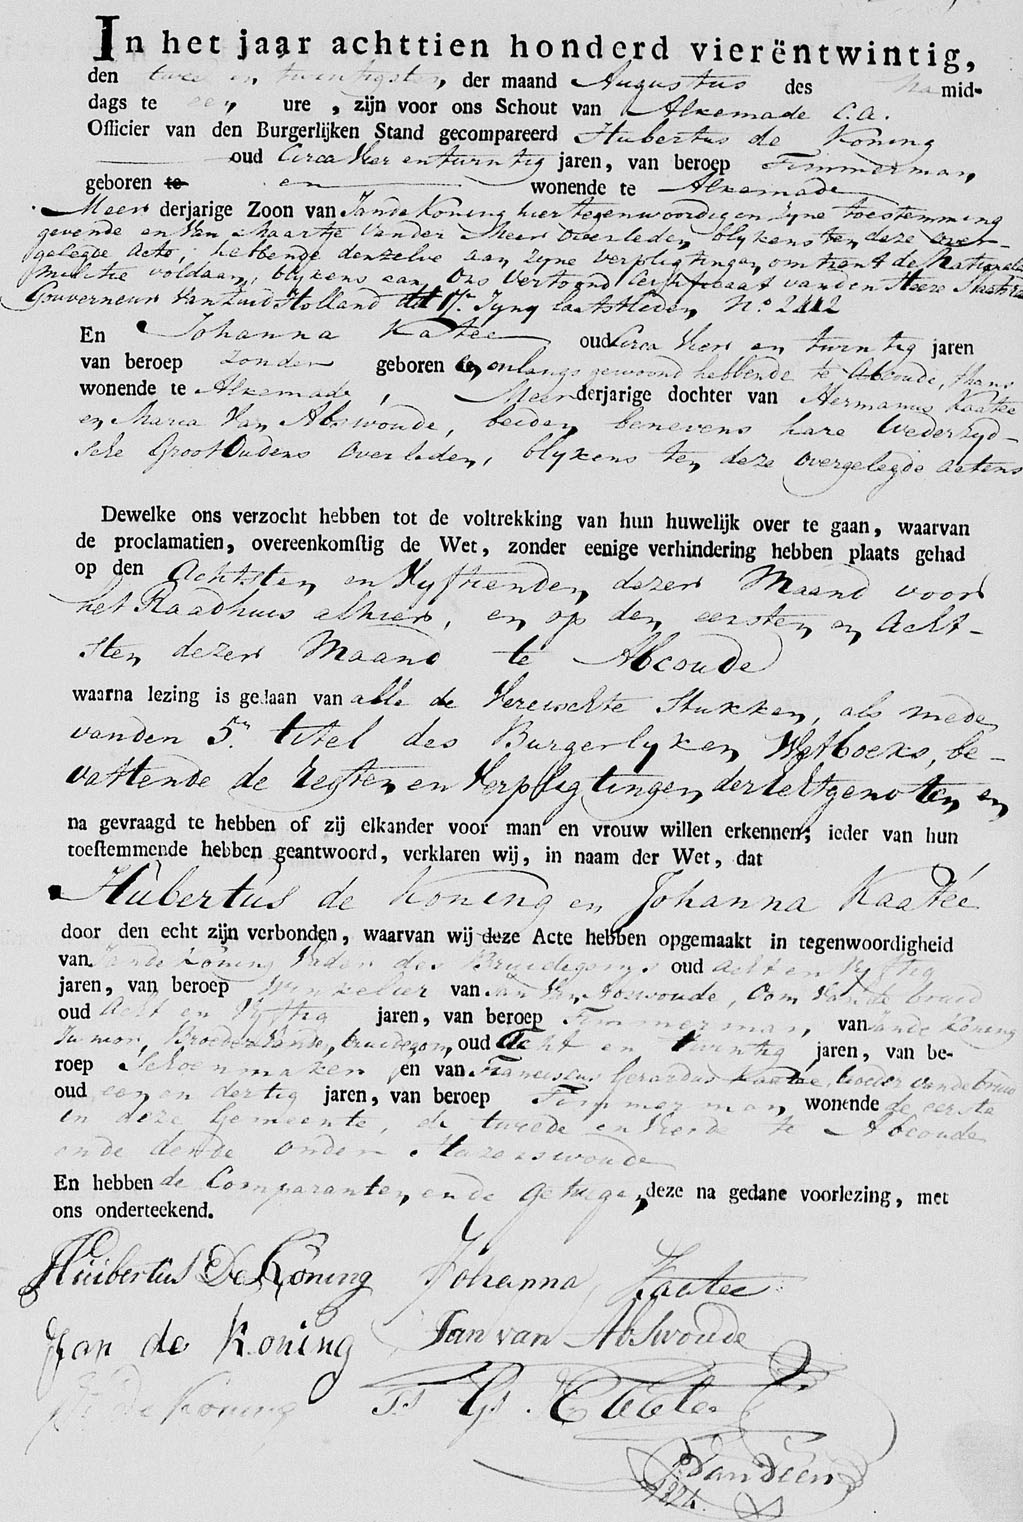 In het jaar achttien honderd vierëntwintig,
den twee en twintigsten, der maand Augustus des namid-
dags te een ure, zijn voor ons Schout van Alkemade C.A.
Officier van den Burgerlijken Stand gecompareerd Hubertus de Koning
oud Circa Vier en twintig jaren, van beroep Timmerman,
geboren te en wonende te Alkemade
Meerderjarige Zoon van Jan de Koning hier tegenwoordig en zyne toestemming
gevende en Van Maartje Vander Meer Overleden, blykens ten deze over-
gelegde Acte, hebbende denzelve aan zyne verpligtingen omtrent de Nationale
Militie voldaan, blykens een Ons Vertoond Certificaat van den Heere
Gouverneur Van Zuid Holland dd 17n. Juny laatstleden, No. 2412
En Johanna Katee oud Circa Vier en twintig jaren
van beroep zonder geboren en onlangs gewoond hebbende te Abcoude, thans
wonende te Alkemade, Meerderjarige dochter van Hermanus Kaatee
en Maria Van Abswoude, beiden benevens hare Wederzyd-
sche Groot Ouders Overleden, blykens ten deze overgelegde actens
Dewelke ons verzocht hebben tot de voltrekking van hun huwelijk over te gaan, waarvan
de proclamatien, overeenkomstig de Wet, zonder eenige verhindering hebben plaats gehad
op den Achtsten en Vyftienden dezer Maand voor
het Raadhuis alhier, en op den eersten en Acht-
sten dezer Maand te Abcoude
waarna lezing is gedaan van alle de Vereischte Stukken, als mede
vanden 5n. titel des Burgerlyken Wetboeks, be-
vattende de regten en Verpligtingen der echtgenoten, en
na gevraagd te hebben of zij elkander voor man en vrouw willen erkennen; ieder van hun
toestemmende hebben geantwoord, verklaren wij, in naam der Wet, dat
Hubertus de Koning en Johanna Kaatée
door den echt zijn verbonden, waarvan wij deze Acte hebben opgemaakt in tegenwoordigheid
van Jan de Koning Vader des Bruidegoms oud acht en Vyftig
jaren, van beroep Winkelier van Jan Van Abswoude, Oom Van de bruid
oud Acht en Vyftig jaren, van beroep Timmerman, van Jan de Koning
Junior, Broeder Van de bruidegom, oud Acht en twintig jaren, van be-
roep Schoenmaker en van Franciscus Gerardus Kaatee, broeder van de bruid
oud een en dertig jaren, van beroep Timmerman, wonende de eerste
in deze Gemeente, de tweede en Vierde te Abcoude
en de derde onder Hazerswoude
En hebben de Comparanten en de getuigen deze na gedane voorlezing, met
ons onderteekend.
Huibertus De Koning Johanna Kaatee
Jan de Koning Jan van Abswoude
de Koning